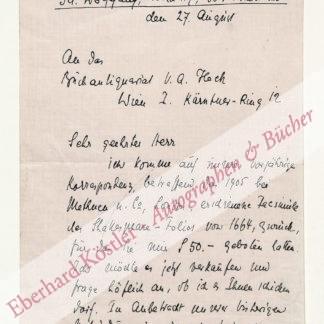 den 27. August
An das
Buchantiquariat V. A. Heck
Wien I. Kärntner-Ring 12
Sehr geehrter Herr
ich komme auf unsere vorjährige
Korrespondenz, betreffend die 1905 bei
Methuen u. Co, London erschienene Facsimile
des Shakespeare-Folios von 1664, zurück,
für die Sie mir $ 50.- geboten hatten.
Ich möchte es jetzt verkaufen und
frage höflich an, ob ich es Ihnen schicken
darf. In Anbetracht unserer bisherigen
Eberhard Köstler - Autographen & Bücher